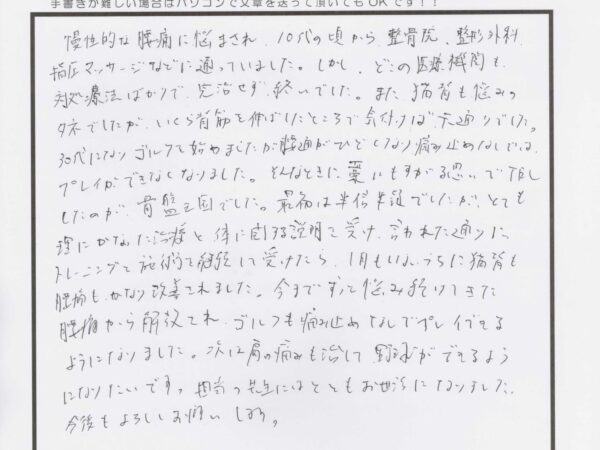 手書きが難しい場合はパソコンで文章を送って頂いてもOKです！！
慢性的な腰痛に悩まされ、10代の頃から、整骨院、整形外科、
指圧マッサージなどに通っていました。しかし、どこの医療機関も、
対処療法ばかりで、完治せず、終いでした。また、猫背も悩みの
タネでしたが、いくら背筋を伸ばしたところで気付けば元通りでした。
30代になりゴルフを始めましたが腰痛がひどくなり痛み止めなしでは、
プレイができなくなりました。そんなときに藁にもすがる思いで
したのが、骨盤王国でした。最初は半信半疑でしたが、とても
理にかなった治療と体に関する説明を受け、言われた通りに
トレーニングと施術を継続して受けたら、1月もしないうちに猫背も
腰痛も、かなり改善されました。今までずっと悩み続けてきた
腰痛から解放され、ゴルフも痛み止めなしでプレイできる
ようになりました。次は肩の痛みも治して野球ができるよう
になりたいです。担当の先生にはとてもお世話になりました。
今後もよろしくお願いします。